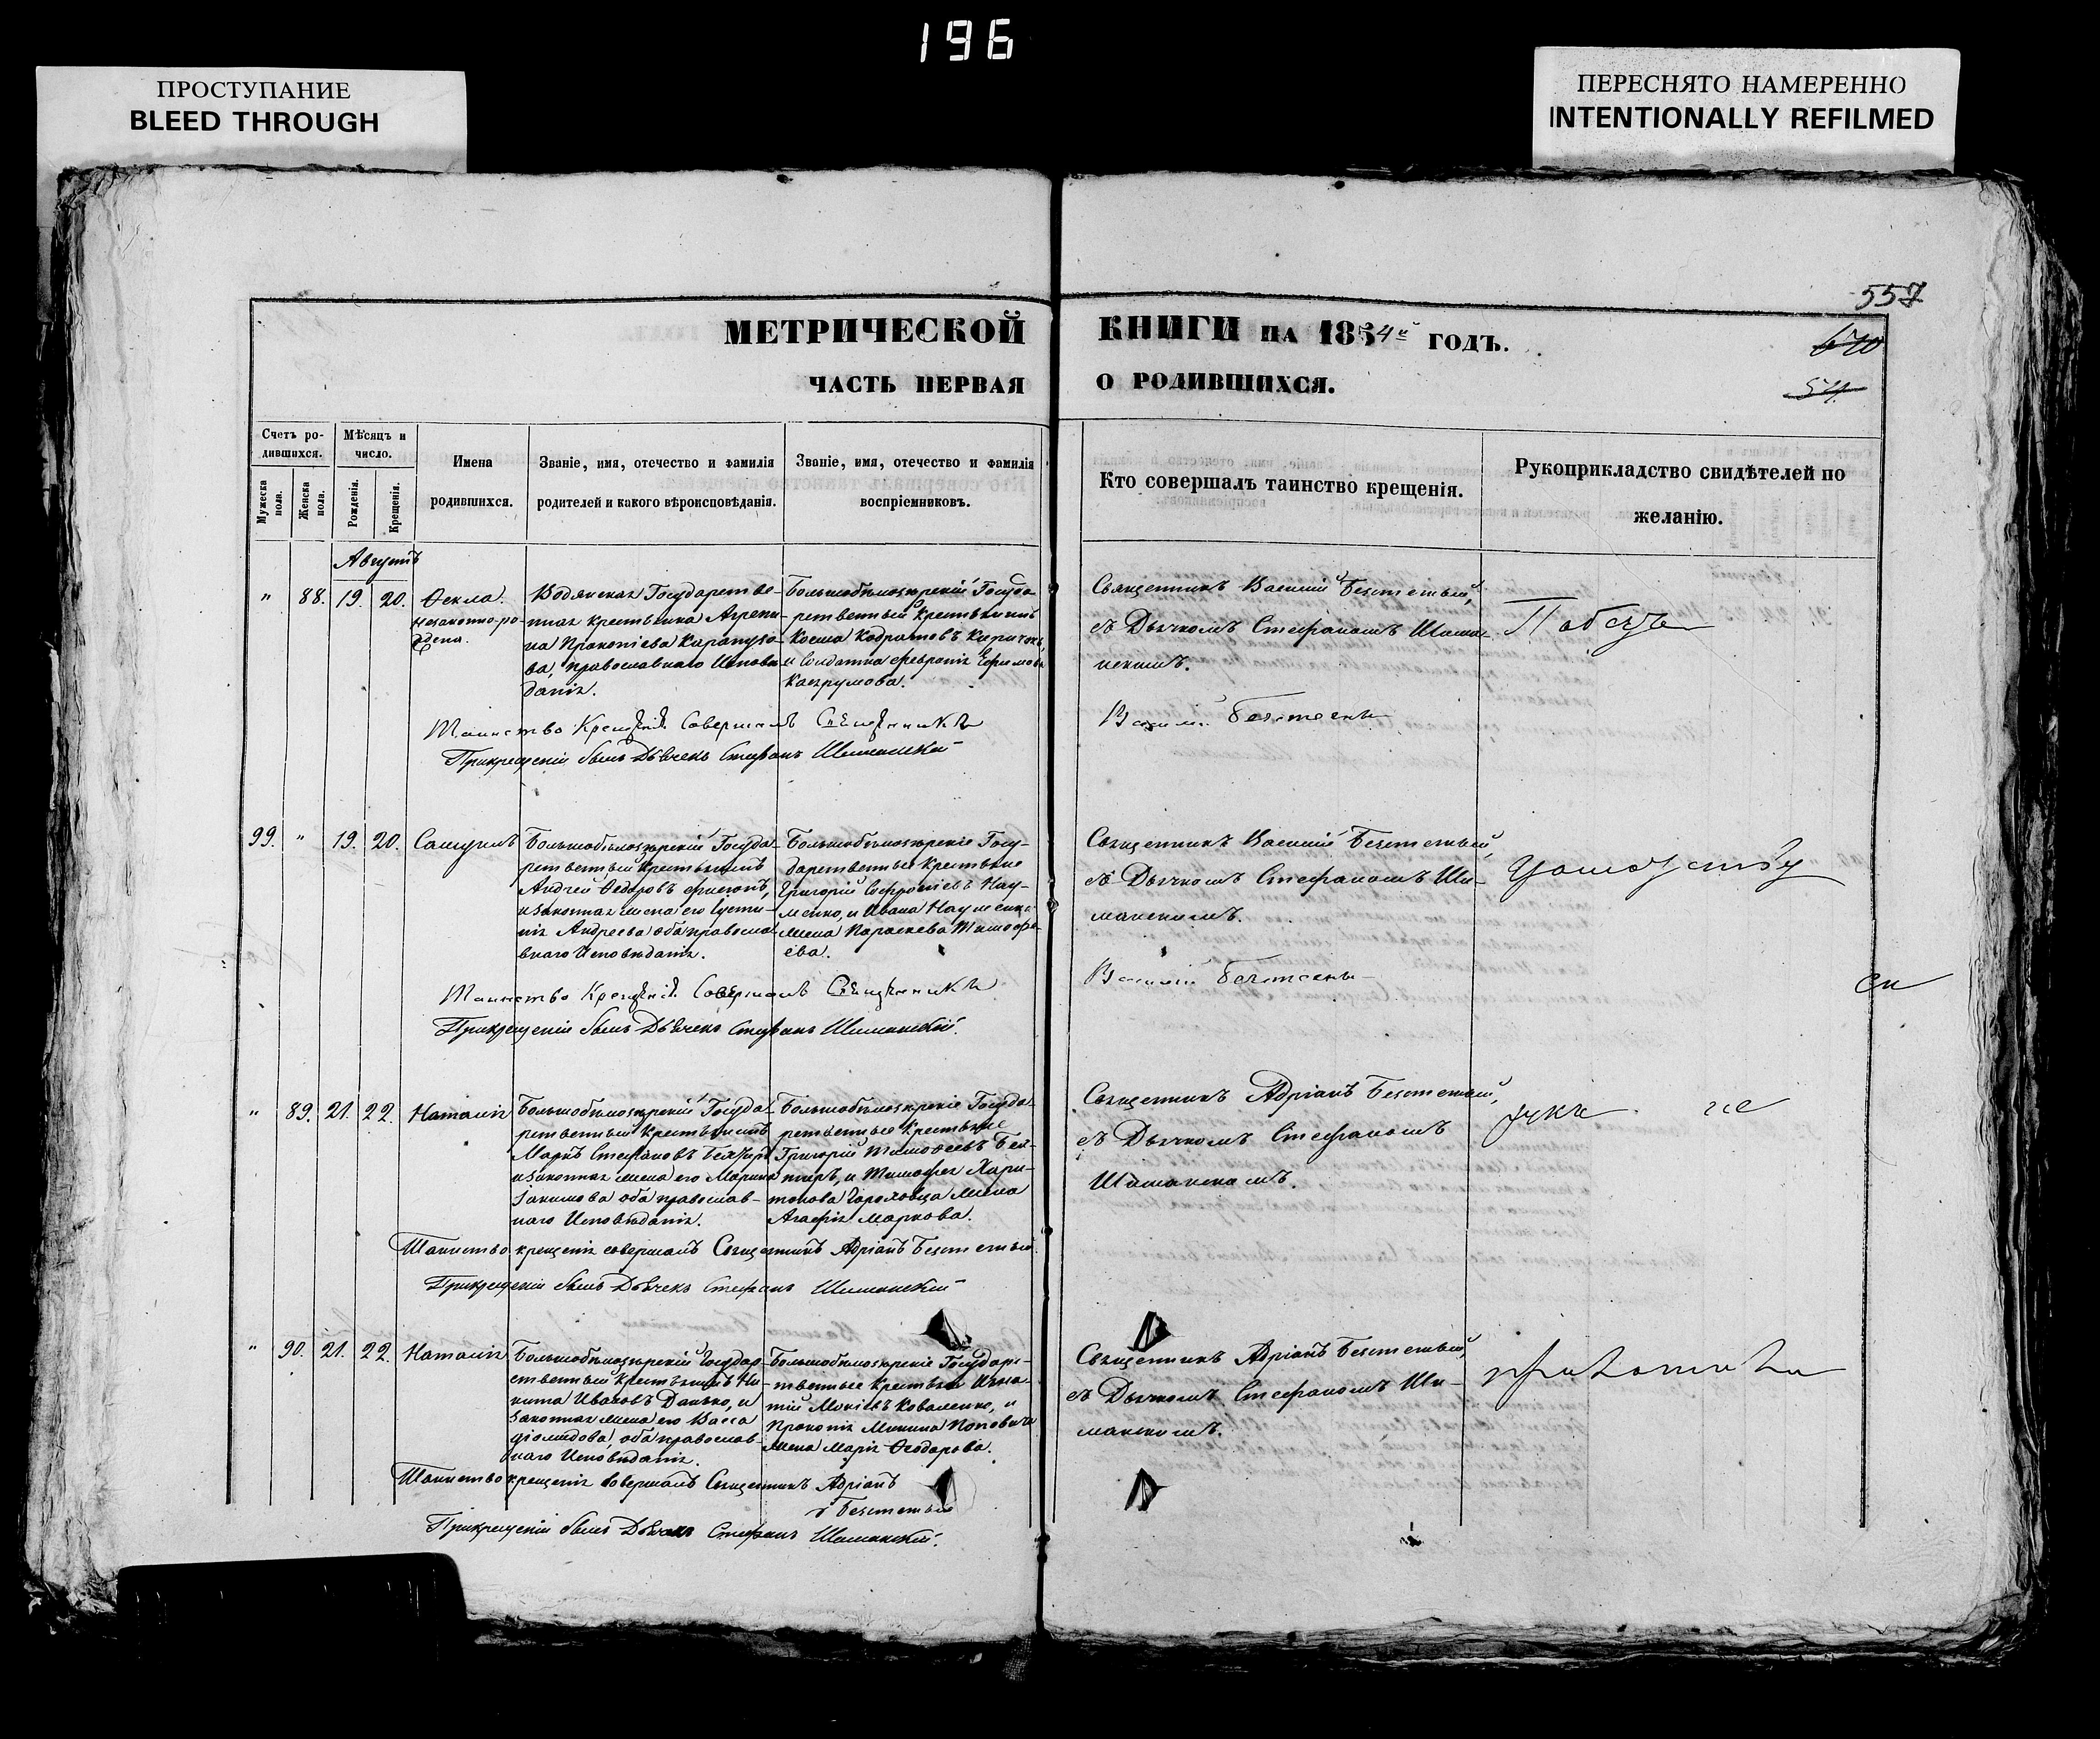 196
ПРОСТУПАНИЕ
BLEED THROUGH
ПЕРЕСНЯТО НАМЕРЕННО
INTENTIONALLY REFILMED
557
670
МЕТРИЧЕСКОЙ КНИГИ НА 1854й ГОДЪ.
ЧАСТЬ ПЕРВАЯ О РОДИВШИХСЯ.
Счетъ ро-
дившихся.
Мужеска пола.
Женска пола.
Мѣсяцъ и
число.
Рожденія.
Крещенія.
Имена
родившихся.
Званіе, имя, отечество и фамилія
родителей и какого вѣроисповѣданія.
Званіе, имя, отечество и фамилія
воспріемниковъ.
Кто совершалъ таинство крещенія.
Рукоприкладство свидѣтелей по
желанію.
Августъ
" 88. 19. 20.
Ѳекла.
незаконно-ро-
ждена.
Водянская Государстве-
нная крестьянка Агрепи-
на Прокопіева
ва, православнаго Исповѣ-
данія.
Большобѣлозѣрскій Госуда-
рственный Крестьянинъ
Косма Кодратовъ Киричокъ,
и Солдатка Февронія Ефимова
Священникъ Василій
съ Дьячкомъ Стефаномъ Шима-
нскимъ.
Таинство Крещенія Совершалъ Священникъ
Василій
При крещеніи былъ Дьячекъ Стефанъ Шиманскій
99. " 19. 20. Самуилъ
Большобѣлозѣрскій Госуда-
рственный Крестьянинъ
Андрей Ѳедоровъ
и законная жена его Густи-
нія Андреева оба православ-
внаго Исповѣданія.
Большобѣлозѣрскіе Госу-
дарственные Крестьяне
Григорій Софроніевъ Нау-
менко, и Ивана Науменка
жена Параскева Тимофе-
ева.
Священникъ Василій
съ Дьячкомъ Стефаномъ Ши-
манскимъ.
Таинство Крещенія Совершалъ Священникъ
Василій
При крещеніи былъ Дьячекъ Стефанъ Шиманскій.
" 89. 21. 22. Наталія
Большобѣлозѣрскій Госуда-
рственный Крестьянинъ
Маркъ Стефановъ
и законная жена его Марина
Іакимова оба православ-
наго Исповѣданія.
Большобѣлозѣрскіе Госуда-
рственные Крестьяне
Григорій Тимофеевъ
и Тимофея Хари-
тонова Гороховца жена
Агафія Маркова.
Священникъ Адріанъ
съ Дьячкомъ Стефаномъ
Шиманскимъ.
Таинство крещенія совершалъ Священникъ Адріанъ
При крещеніи былъ Дьячекъ Стефанъ Шиманскій
" 90. 21. 22. Наталія
Большобѣлозѣрскій Государ-
ственный Крестьянинъ Ни-
кита Ивановъ Данько, и
законная жена его Васса
Діомидова, оба православ-
наго Исповѣданія.
Большобѣлозѣрскіе Государс-
твенные Крестьяне Игна-
тій Коваленко, и
Прокопія Минина Поповича
жена Марія Ѳеодорова.
Священникъ Адріанъ
съ Дьячкомъ Стефаномъ Ши-
манскимъ.
Таинство крещенія совершалъ Священникъ Адріанъ
При крещеніи былъ Дьячекъ Стефанъ Шиманскій.